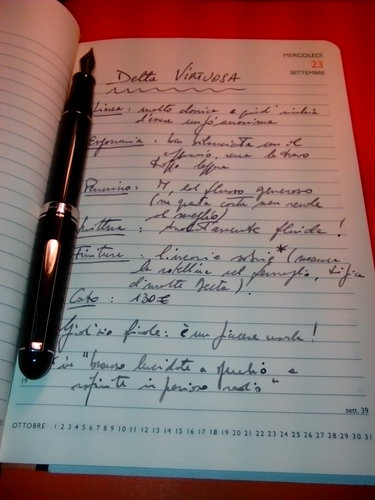 MERCOLEDÌ
23
SETTEMBRE
Delta VIRTUOSA
Linea : molto classica e quindi rischia
d'essere un po' anonima
Ergonomia : ben bilanciata con il
cappuccio, senza la trovo
troppo leggera
Pennino : M, dal flusso generoso
(ma questa carta non rende
al meglio)
Scrittura : assolutamente fluida!
Finiture : lineari e sobrie * (manca
la rotellina sul fermaglio, tipica
di molte Delta)!
Costo : 130 €
Giudizio finale : è un piacere usarla!
19
OTTOBRE 1 2 3 4 5 6 7 8 9 10 11 12 13 14 15 16 17 18 19 20 21 22 23 24 25 26 27 28 29 30 31
sett. 39